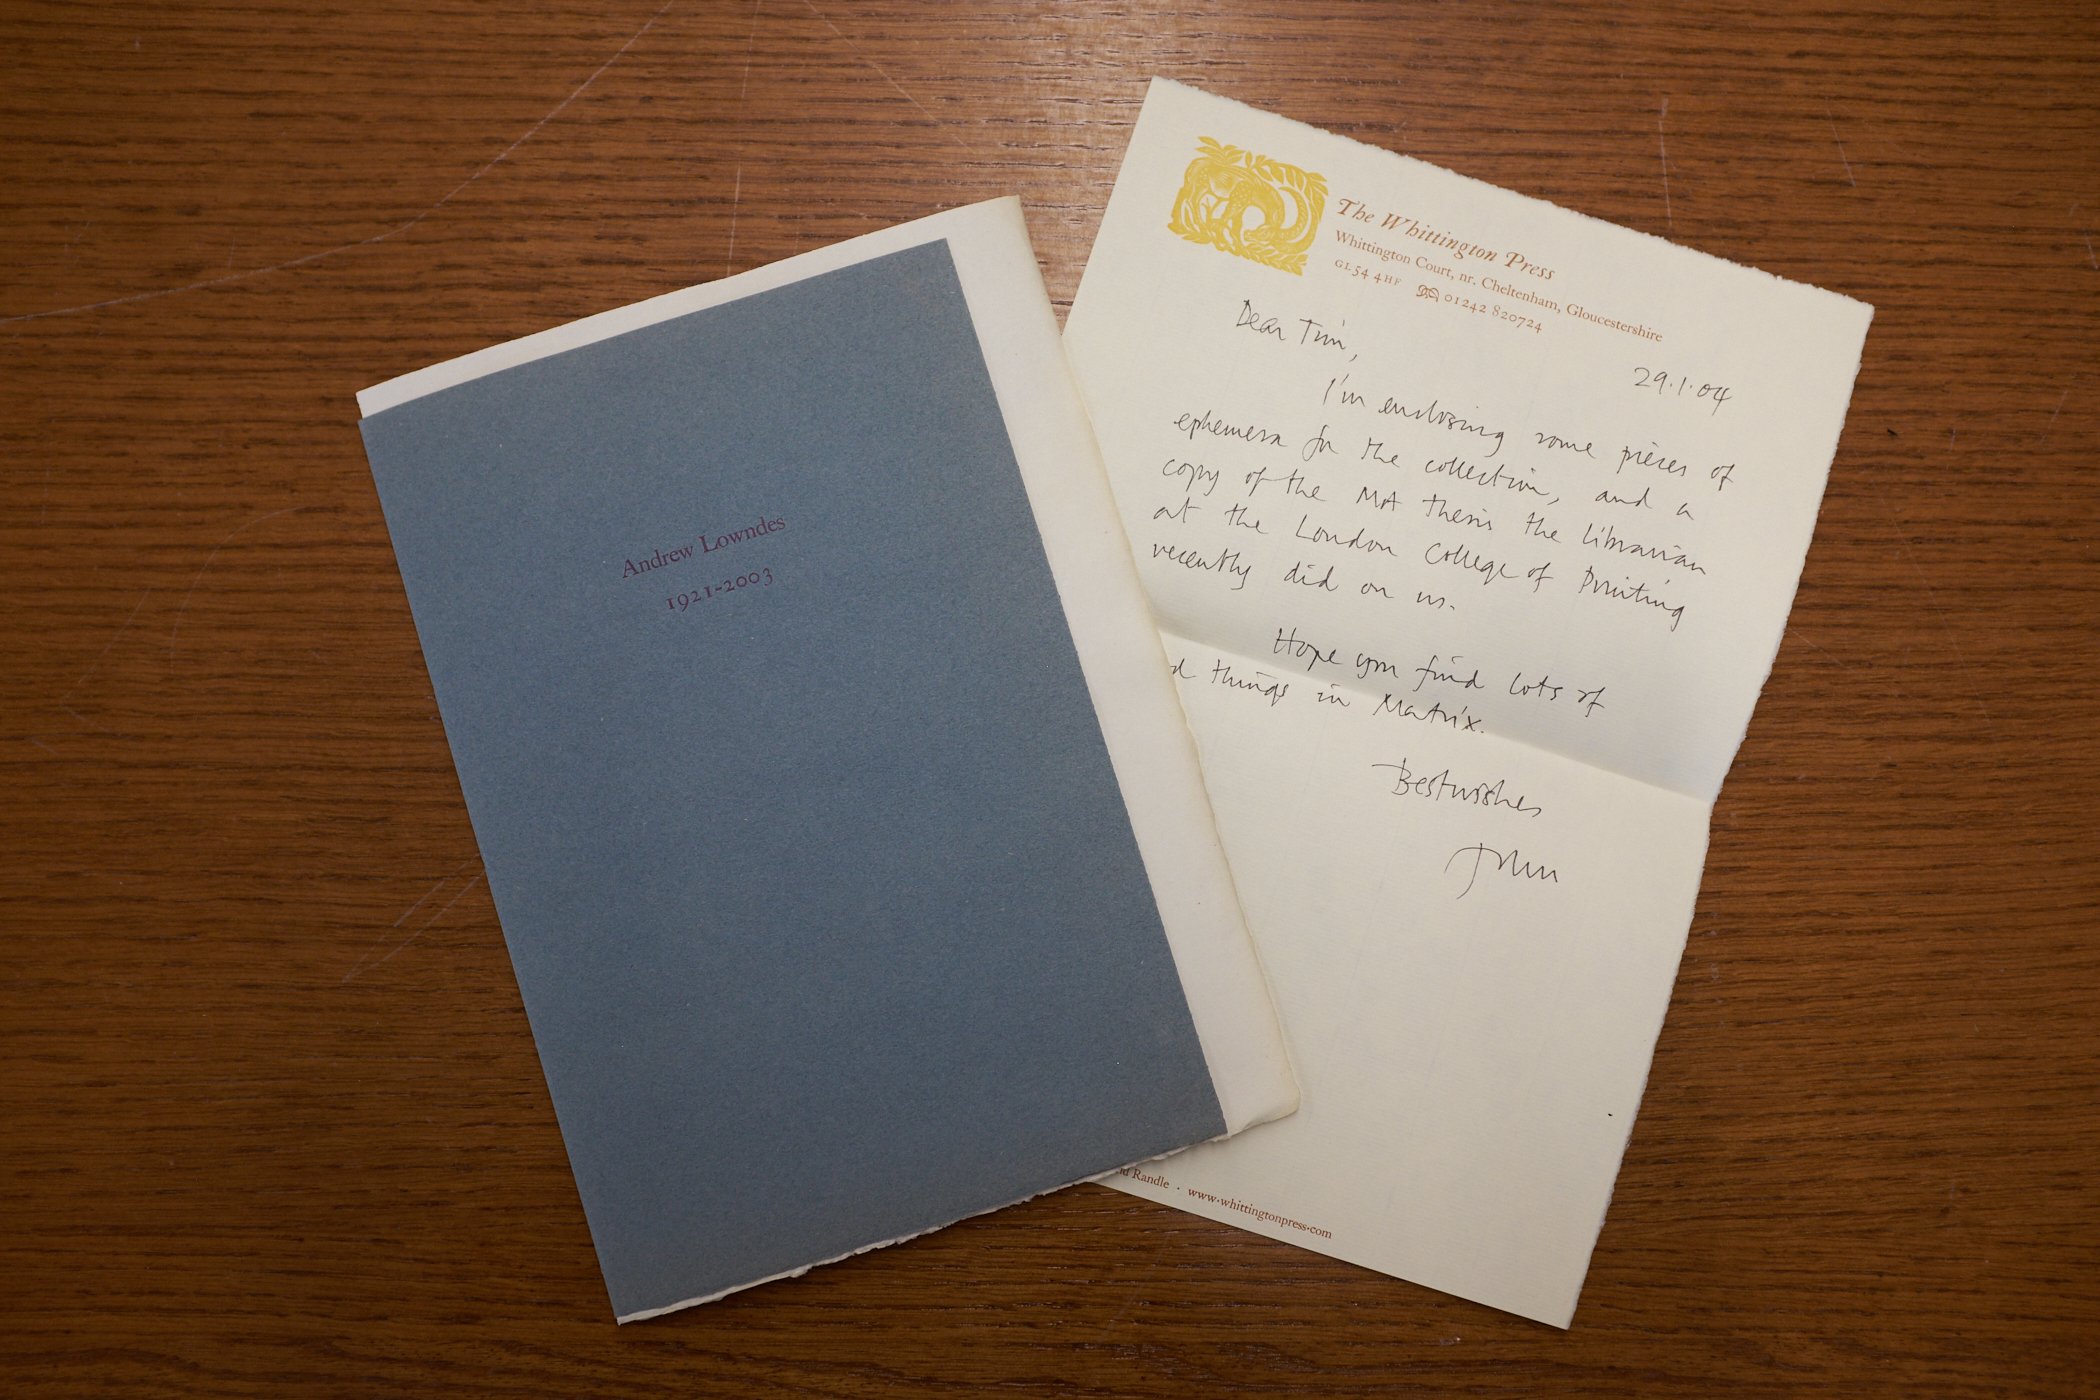 Andrew Lowndes
1921-2003
The Whittington Press
Whittington Court, nr. Cheltenham, Gloucestershire
GL54 4HF 01242 820724
Dear Tim,
29.1.04
I'm enclosing some pieces of
ephemera for the collection, and a
copy of the MA thesis the librarian
at the London College of Printing
recently did on us.
Hope you find lots of
d things in Matrix.
Best wishes
John
nd Randle · www.whittingtonpress.com